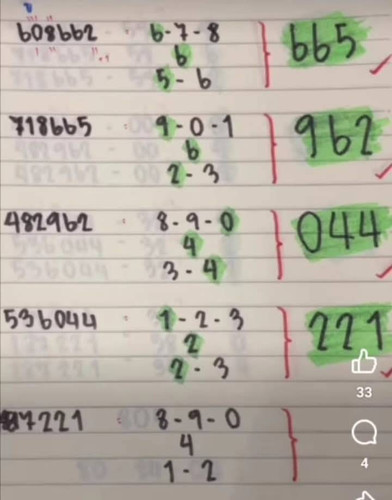 608662 6-7-8
6
5-6
665
718665 9-0-1
6
2-3
962
482962 8-9-0
4
3-4
044
536044 1-2-3
2
2-3
221
7221 8-9-0
4
1-2
33
4